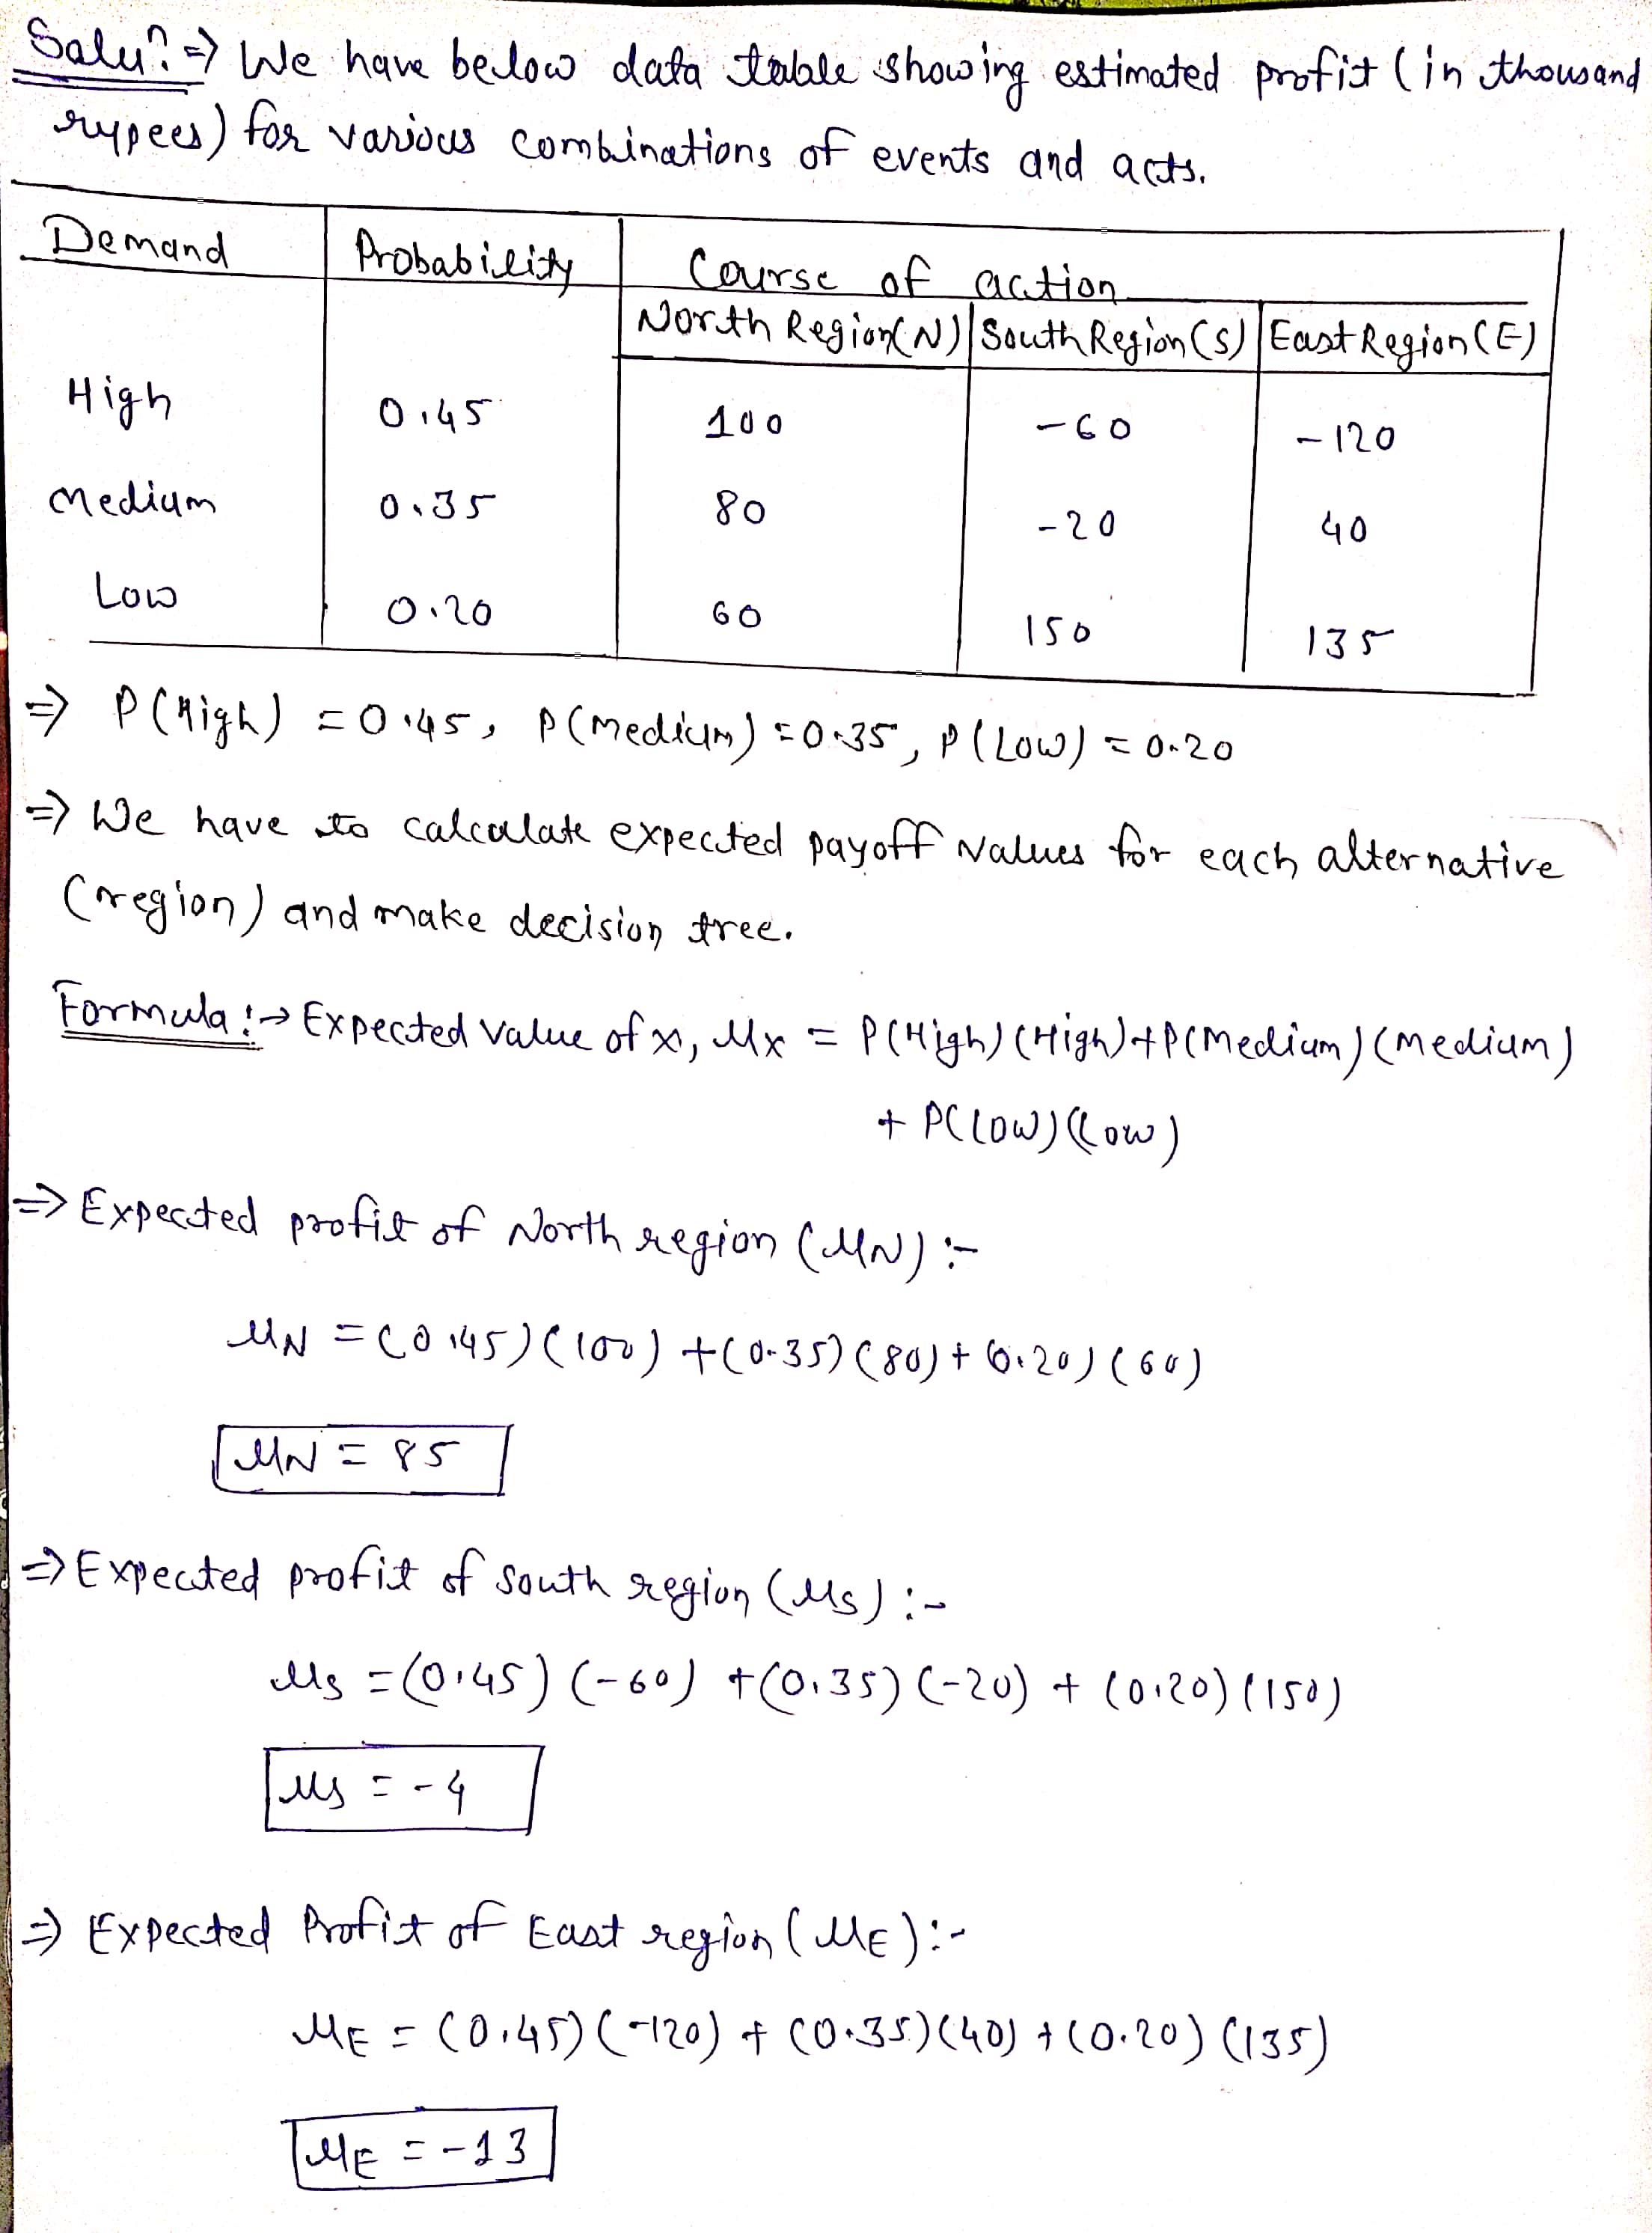 Solun ⇒ We have below data table showing estimated profit (in thousand
rupees) for various combinations of events and acts.
Demand | Probability | Course of action
North Region(N) | South Region(S) | East Region(E)
High 0.45 100 -60 -120
Medium 0.35 80 -20 40
Low 0.20 60 150 135
⇒ P(High) = 0.45, P(Medium) = 0.35, P(Low) = 0.20
⇒ We have to calculate expected payoff values for each alternative
(region) and make decision tree.
Formula :→ Expected value of x, μx = P(High)(High)+P(Medium)(Medium)
+ P(Low)(Low)
⇒ Expected profit of North region (μN) :-
μN = (0.45)(100) + (0.35)(80) + (0.20)(60)
μN = 85
⇒ Expected profit of South region (μs) :-
μs = (0.45)(-60) + (0.35)(-20) + (0.20)(150)
μs = -4
⇒ Expected Profit of East region (μE) :-
μE = (0.45)(-120) + (0.35)(40) + (0.20)(135)
μE = -13